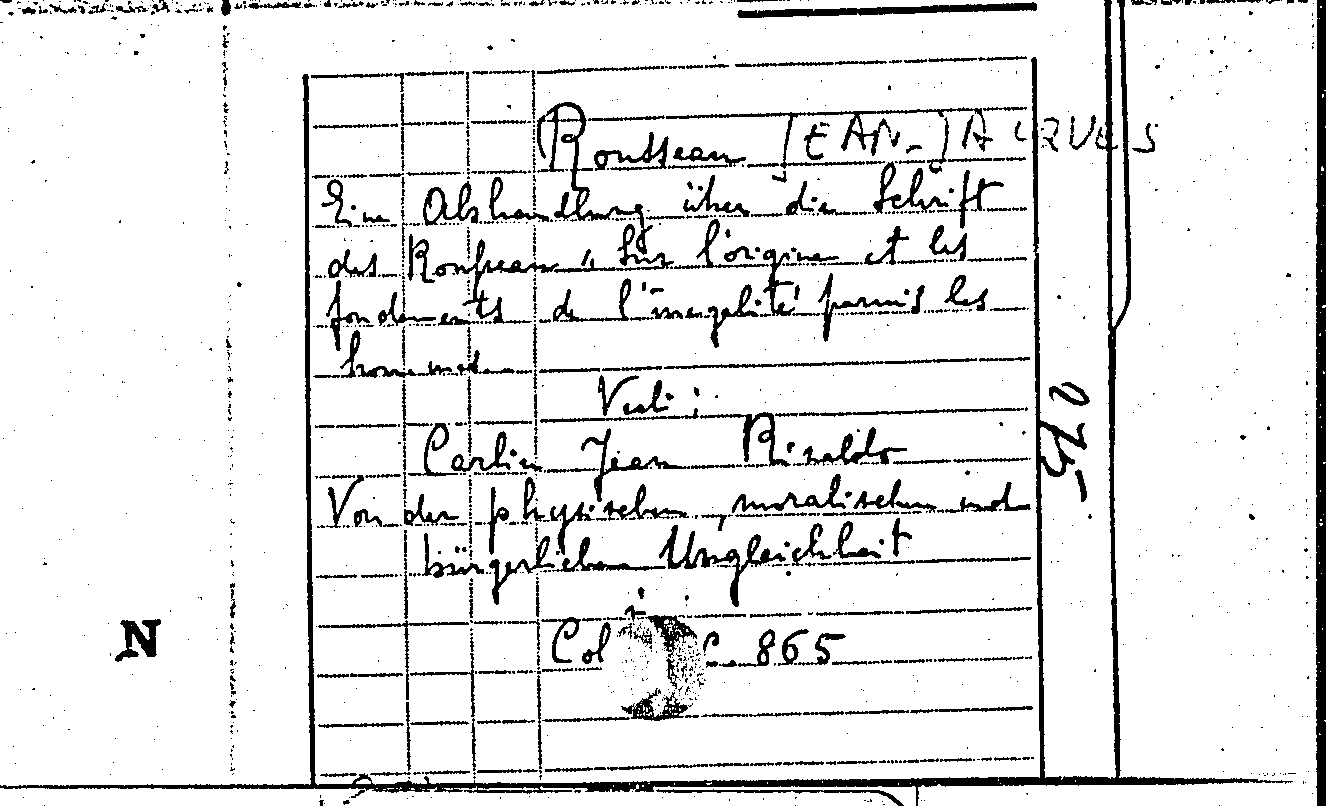 Rousseau JEAN-JACQUES
Eine Abhandlung über die Schrift
des Rousseau " Sur l'origine et les
fondements de l'inegalité parmis les
hommes.
Vide:
Carlin Jean Rinaldo
Von der physischen, moralischen und
bürgerlichen Ungleichheit
Col C. 865
275
N